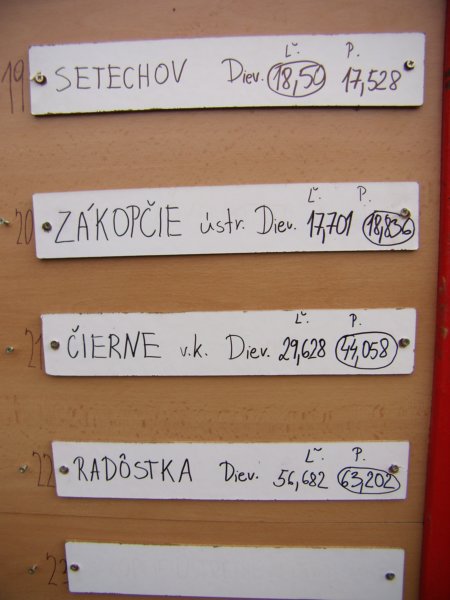 Ľ. P.
19 SETECHOV Diev. 18,50 17,528
Ľ. P.
20 ZÁKOPČIE ústr. Diev. 17,701 18,836
Ľ. P.
21 ČIERNE v.k. Diev. 29,628 44,058
Ľ. P.
22 RADÔSTKA Diev. 56,682 63,202
23